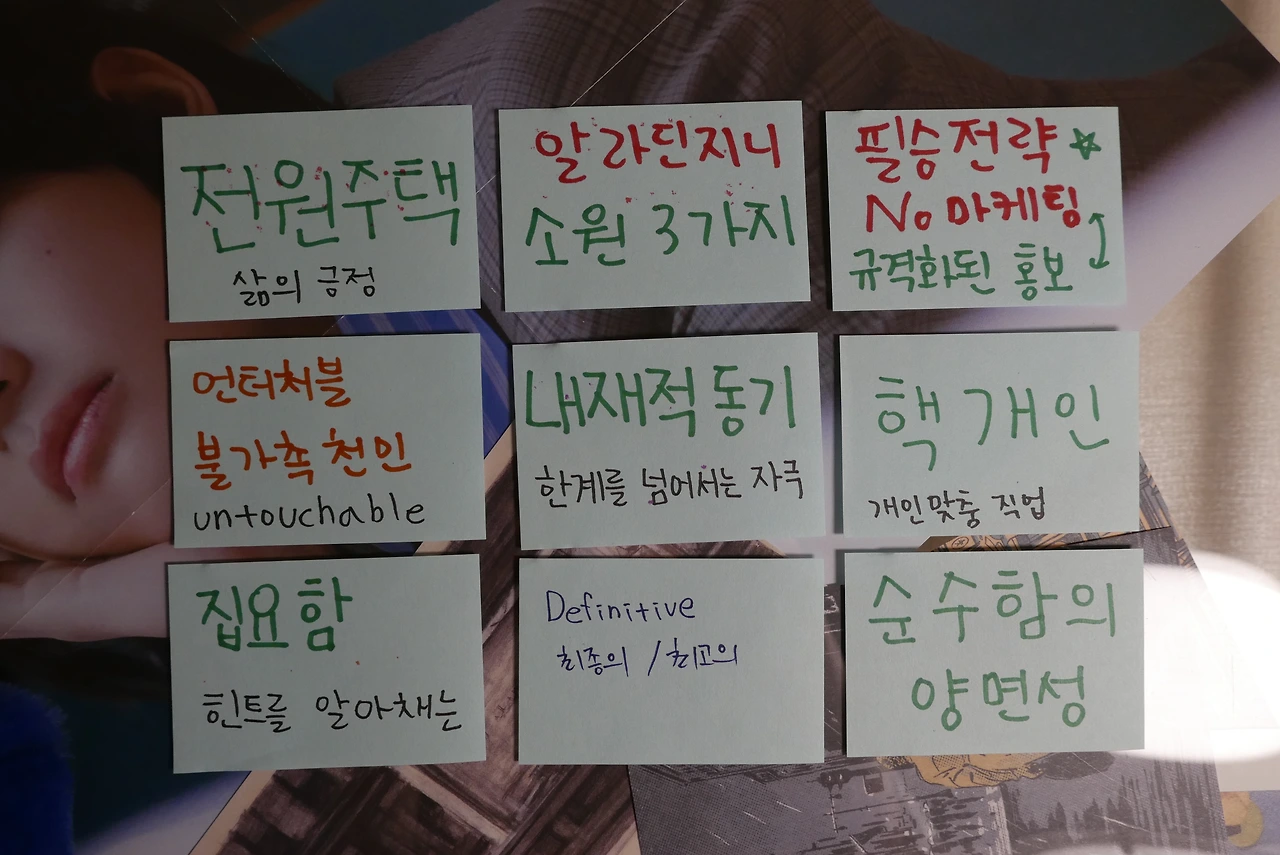 전원주택
삶의 긍정
알라딘지니
소원 3가지
필승전략
No 마케팅
규격화된 홍보
언터처블
불가촉천인
untouchable
내재적 동기
한계를 넘어서는 자극
핵개인
개인맞춤 직업
집요함
힌트를 알아채는
Definitive
최종의 / 최고의
순수함의
양면성